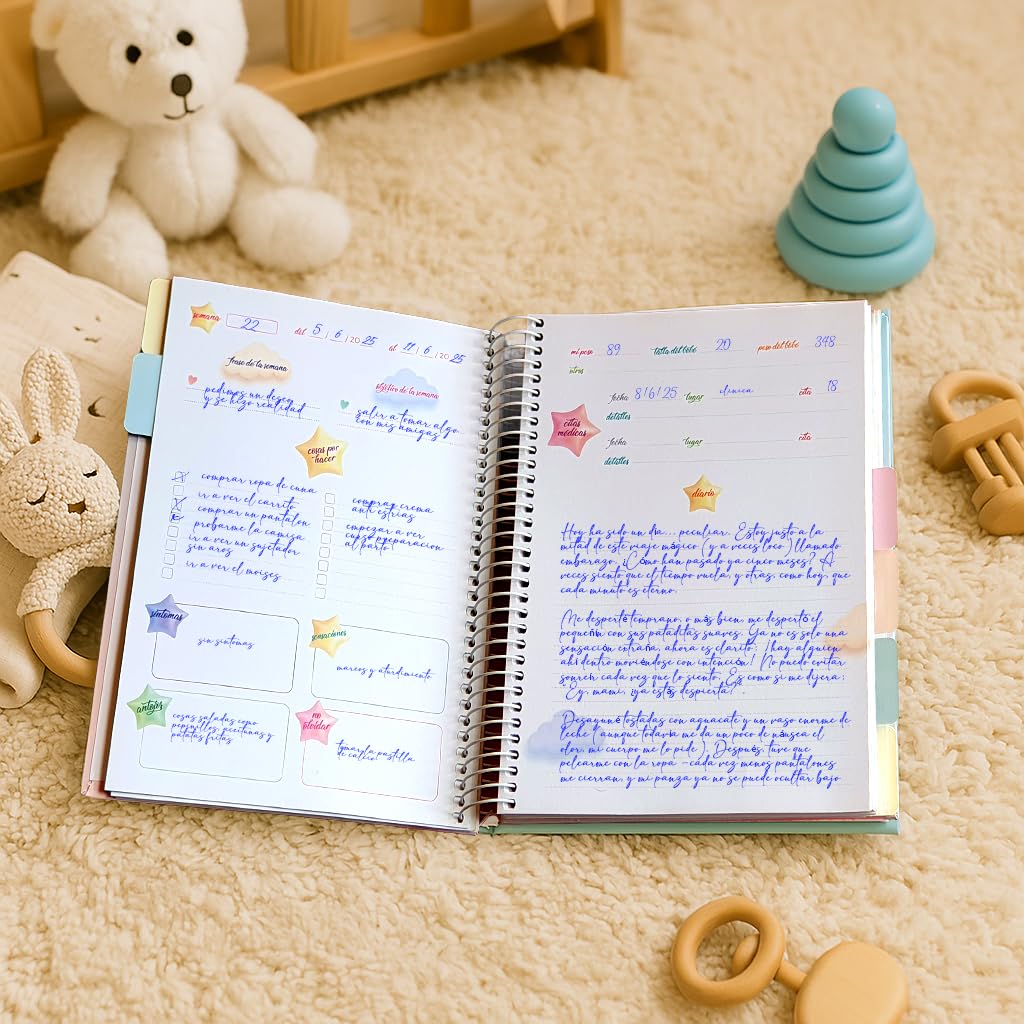 semana 22 del 5 / 6 / 2025 al 11 / 6 / 2025
frase de la semana
pedimos un deseo
y se hizo realidad
objetivo de la semana
salir a tomar algo
con mis amigas
cosas por
hacer
comprar ropa de cuna
ir a ver el carrito
comprar un pantalon
probarme la camisa
ir a ver un sujetador
sin aros
ir a ver el moises
comprar crema
anti estrias
empezar a ver
curso preparacion
al parto
síntomas
sin sintomas
sensaciones
mareos y aturdimiento
antojos
cosas saladas como
pepinillos, aceitunas y
patatas fritas
no
olvidar
tomar la pastilla
de calcio
mi peso 89 talla del bebé 20 peso del bebé 348
otros
citas
médicas
fecha 8/6/25 lugar clinica cita 18
detalles
fecha lugar cita
detalles
diario
Hoy ha sido un día... peculiar. Estoy justo a la
mitad de este viaje mágico (y a veces loco) llamado
embarazo. ¿Cómo han pasado ya cinco meses? A
veces siento que el tiempo vuela, y otras, como hoy, que
cada minuto es eterno.
Me desperté temprano, o más bien me despertó el
pequeñín con sus pataditas suaves. Ya no es solo una
sensación extraña, ahora es clarito: ¡hay alguien
ahí dentro moviéndose con intención! No puedo evitar
sonreír cada vez que lo siento. Es como si me dijera:
"Ey, mami, ¿ya estás despierta?".
Desayuné tostadas con aguacate y un vaso enorme de
leche (aunque todavía me da un poco de náusea el
olor, mi cuerpo me lo pide). Después, tuve que
pelearme con la ropa —cada vez menos pantalones
me cierran, y mi panza ya no se puede ocultar bajo